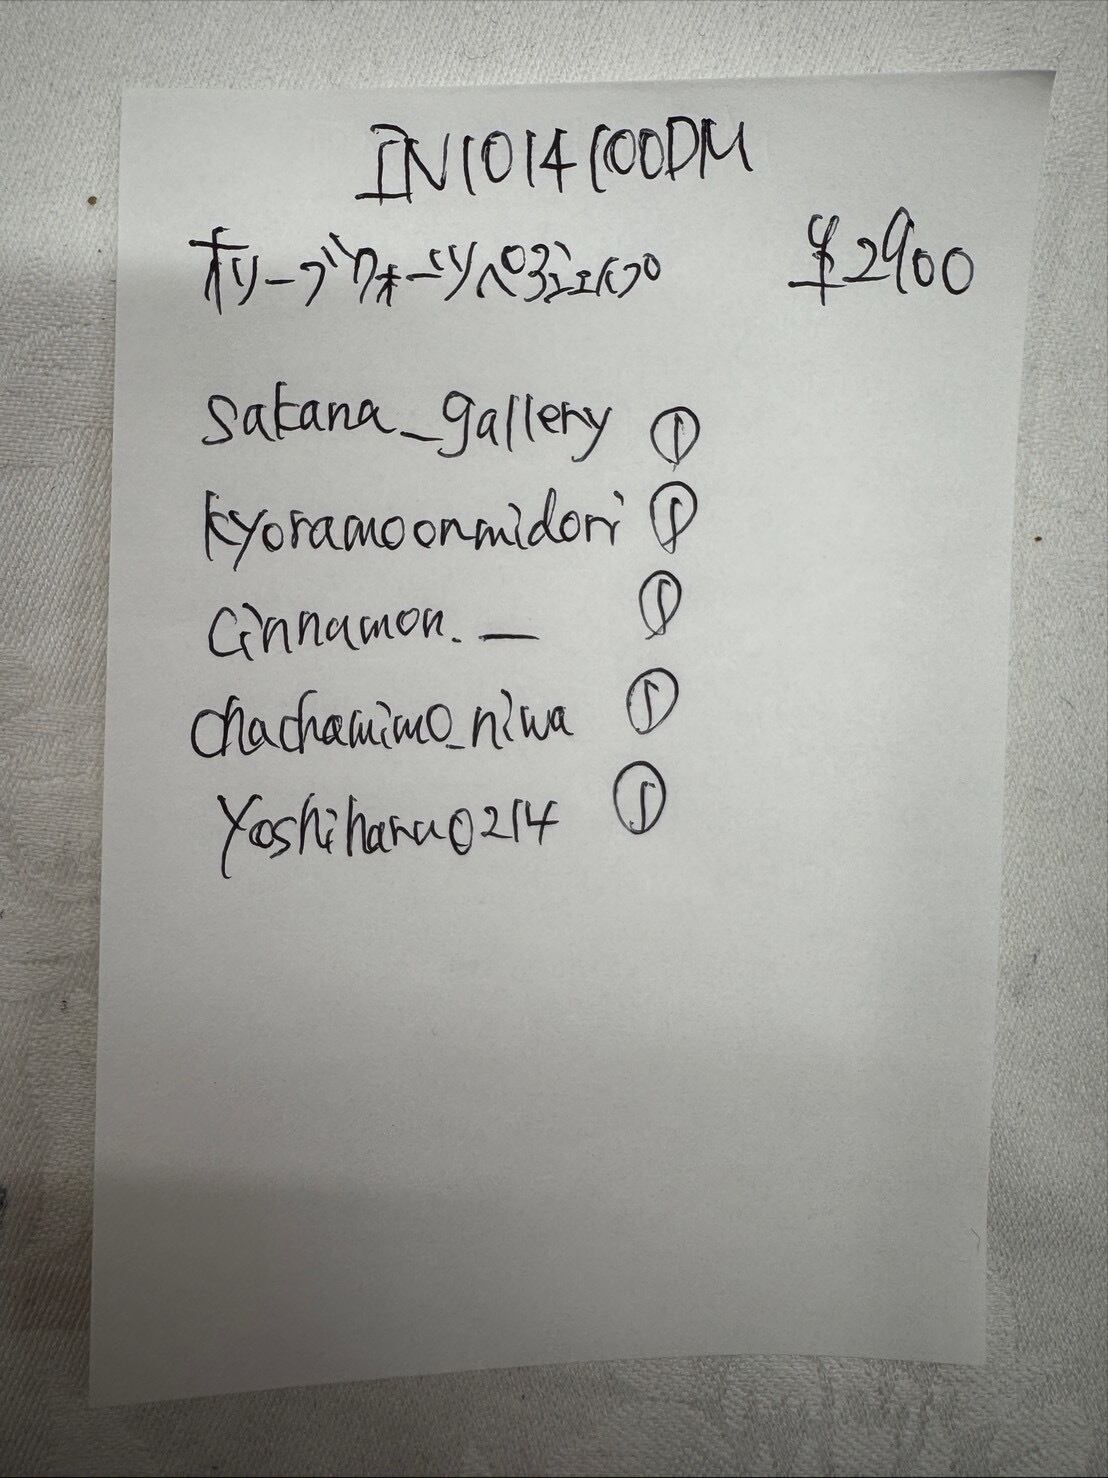 IN1014100DM
オリーブクォーツペア3シェイプ ¥2900
sakana_gallery ①
kyoramoonmidori ①
cinnamon._ ①
chachamimo_niwa ①
yoshiharu0214 ①